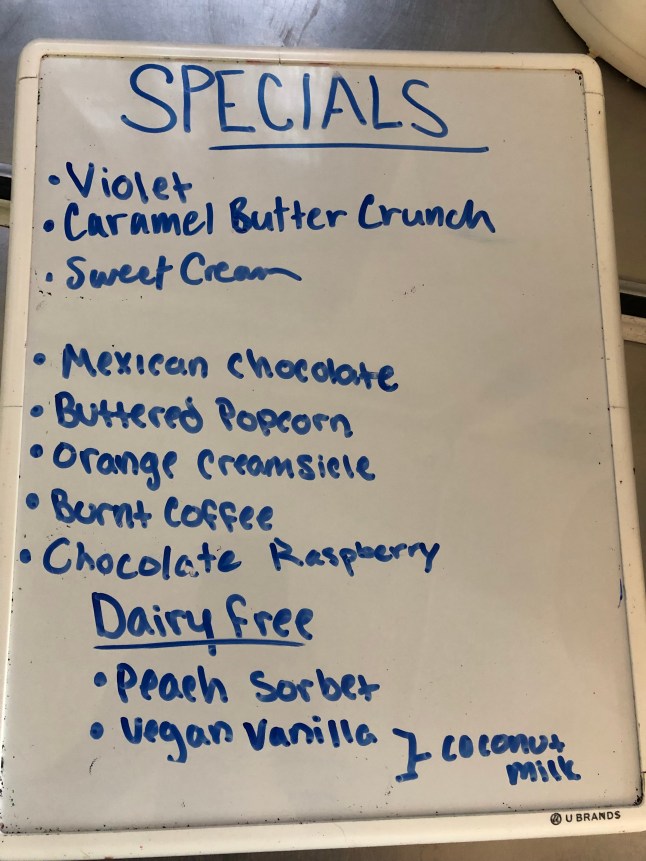 SPECIALS
• Violet
• Caramel Butter Crunch
• Sweet Cream
• Mexican Chocolate
• Buttered Popcorn
• Orange Creamsicle
• Burnt Coffee
• Chocolate Raspberry
Dairy Free
• Peach Sorbet
• Vegan Vanilla } coconut
milk
U BRANDS